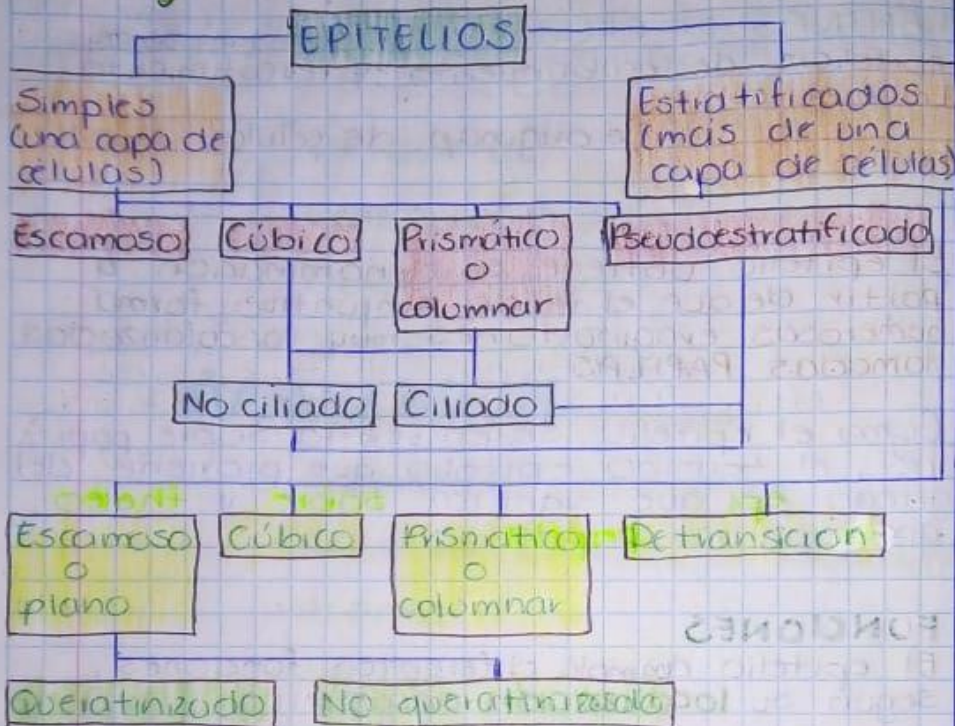 EPITELIOS
Simples
(una capa de
células)
Estratificados
(más de una
capa de células)
Escamoso
Cúbico
Prismático
o
columnar
Pseudoestratificado
No ciliado
Ciliado
Escamoso
o
plano
Cúbico
Prismático
o
columnar
De transición
FUNCIONES
Queratinizado
No queratinizado